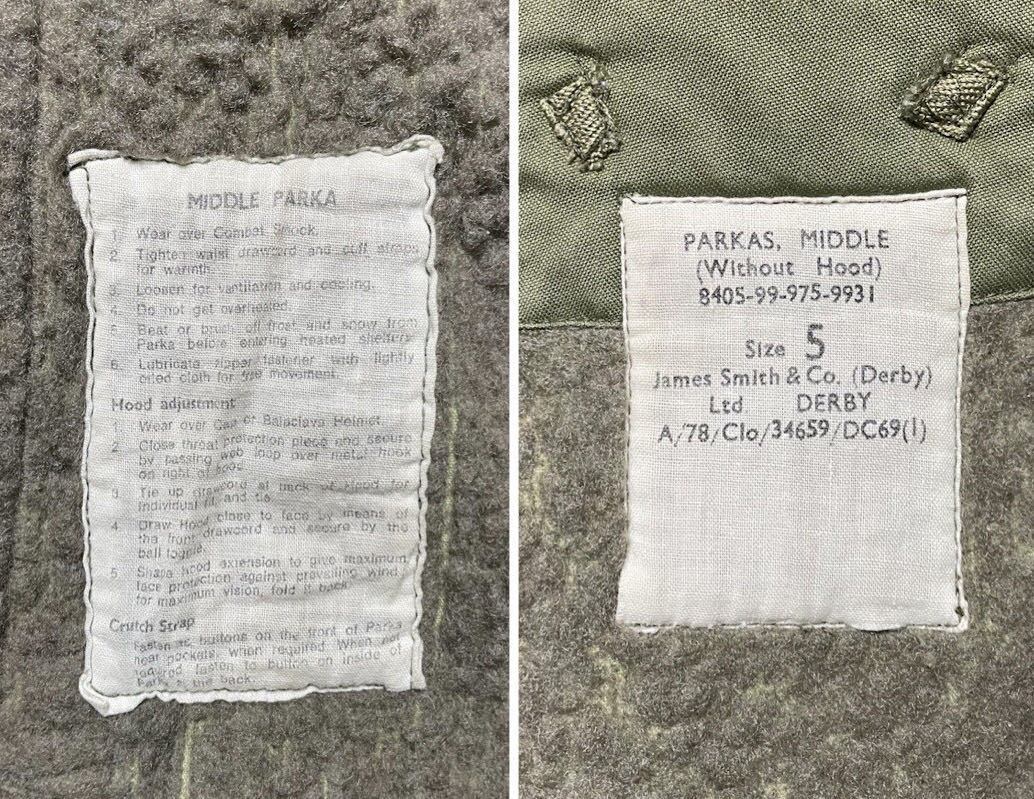 MIDDLE PARKA
1. Wear over Combat Smock.
2. Tighten waist drawcord and cuff straps
for warmth.
3. Loosen for ventilation and cooling.
4. Do not get overheated.
5. Beat or brush off frost and snow from
Parka before entering heated shelters.
6. Lubricate zipper fastener with lightly
oiled cloth for free movement.
Hood adjustment
1. Wear over Cap or Balaclava Helmet.
2. Close throat protection piece and secure
by passing web loop over metal hook
on right of hood.
3. Tie up drawcord at back of Hood for
individual fit, and tie.
4. Draw Hood close to face by means of
the front drawcord and secure by the
ball toggle.
5. Shape hood extension to give maximum
face protection against prevailing wind,
for maximum vision, fold it back.
Crutch Strap
Fasten to buttons on the front of Parka
near pockets, when required When not
required fasten to button on inside of
Parka at the back.
PARKAS, MIDDLE
(Without Hood)
8405-99-975-9931
Size 5
James Smith & Co. (Derby)
Ltd DERBY
A/78/Clo/34659/DC69(1)